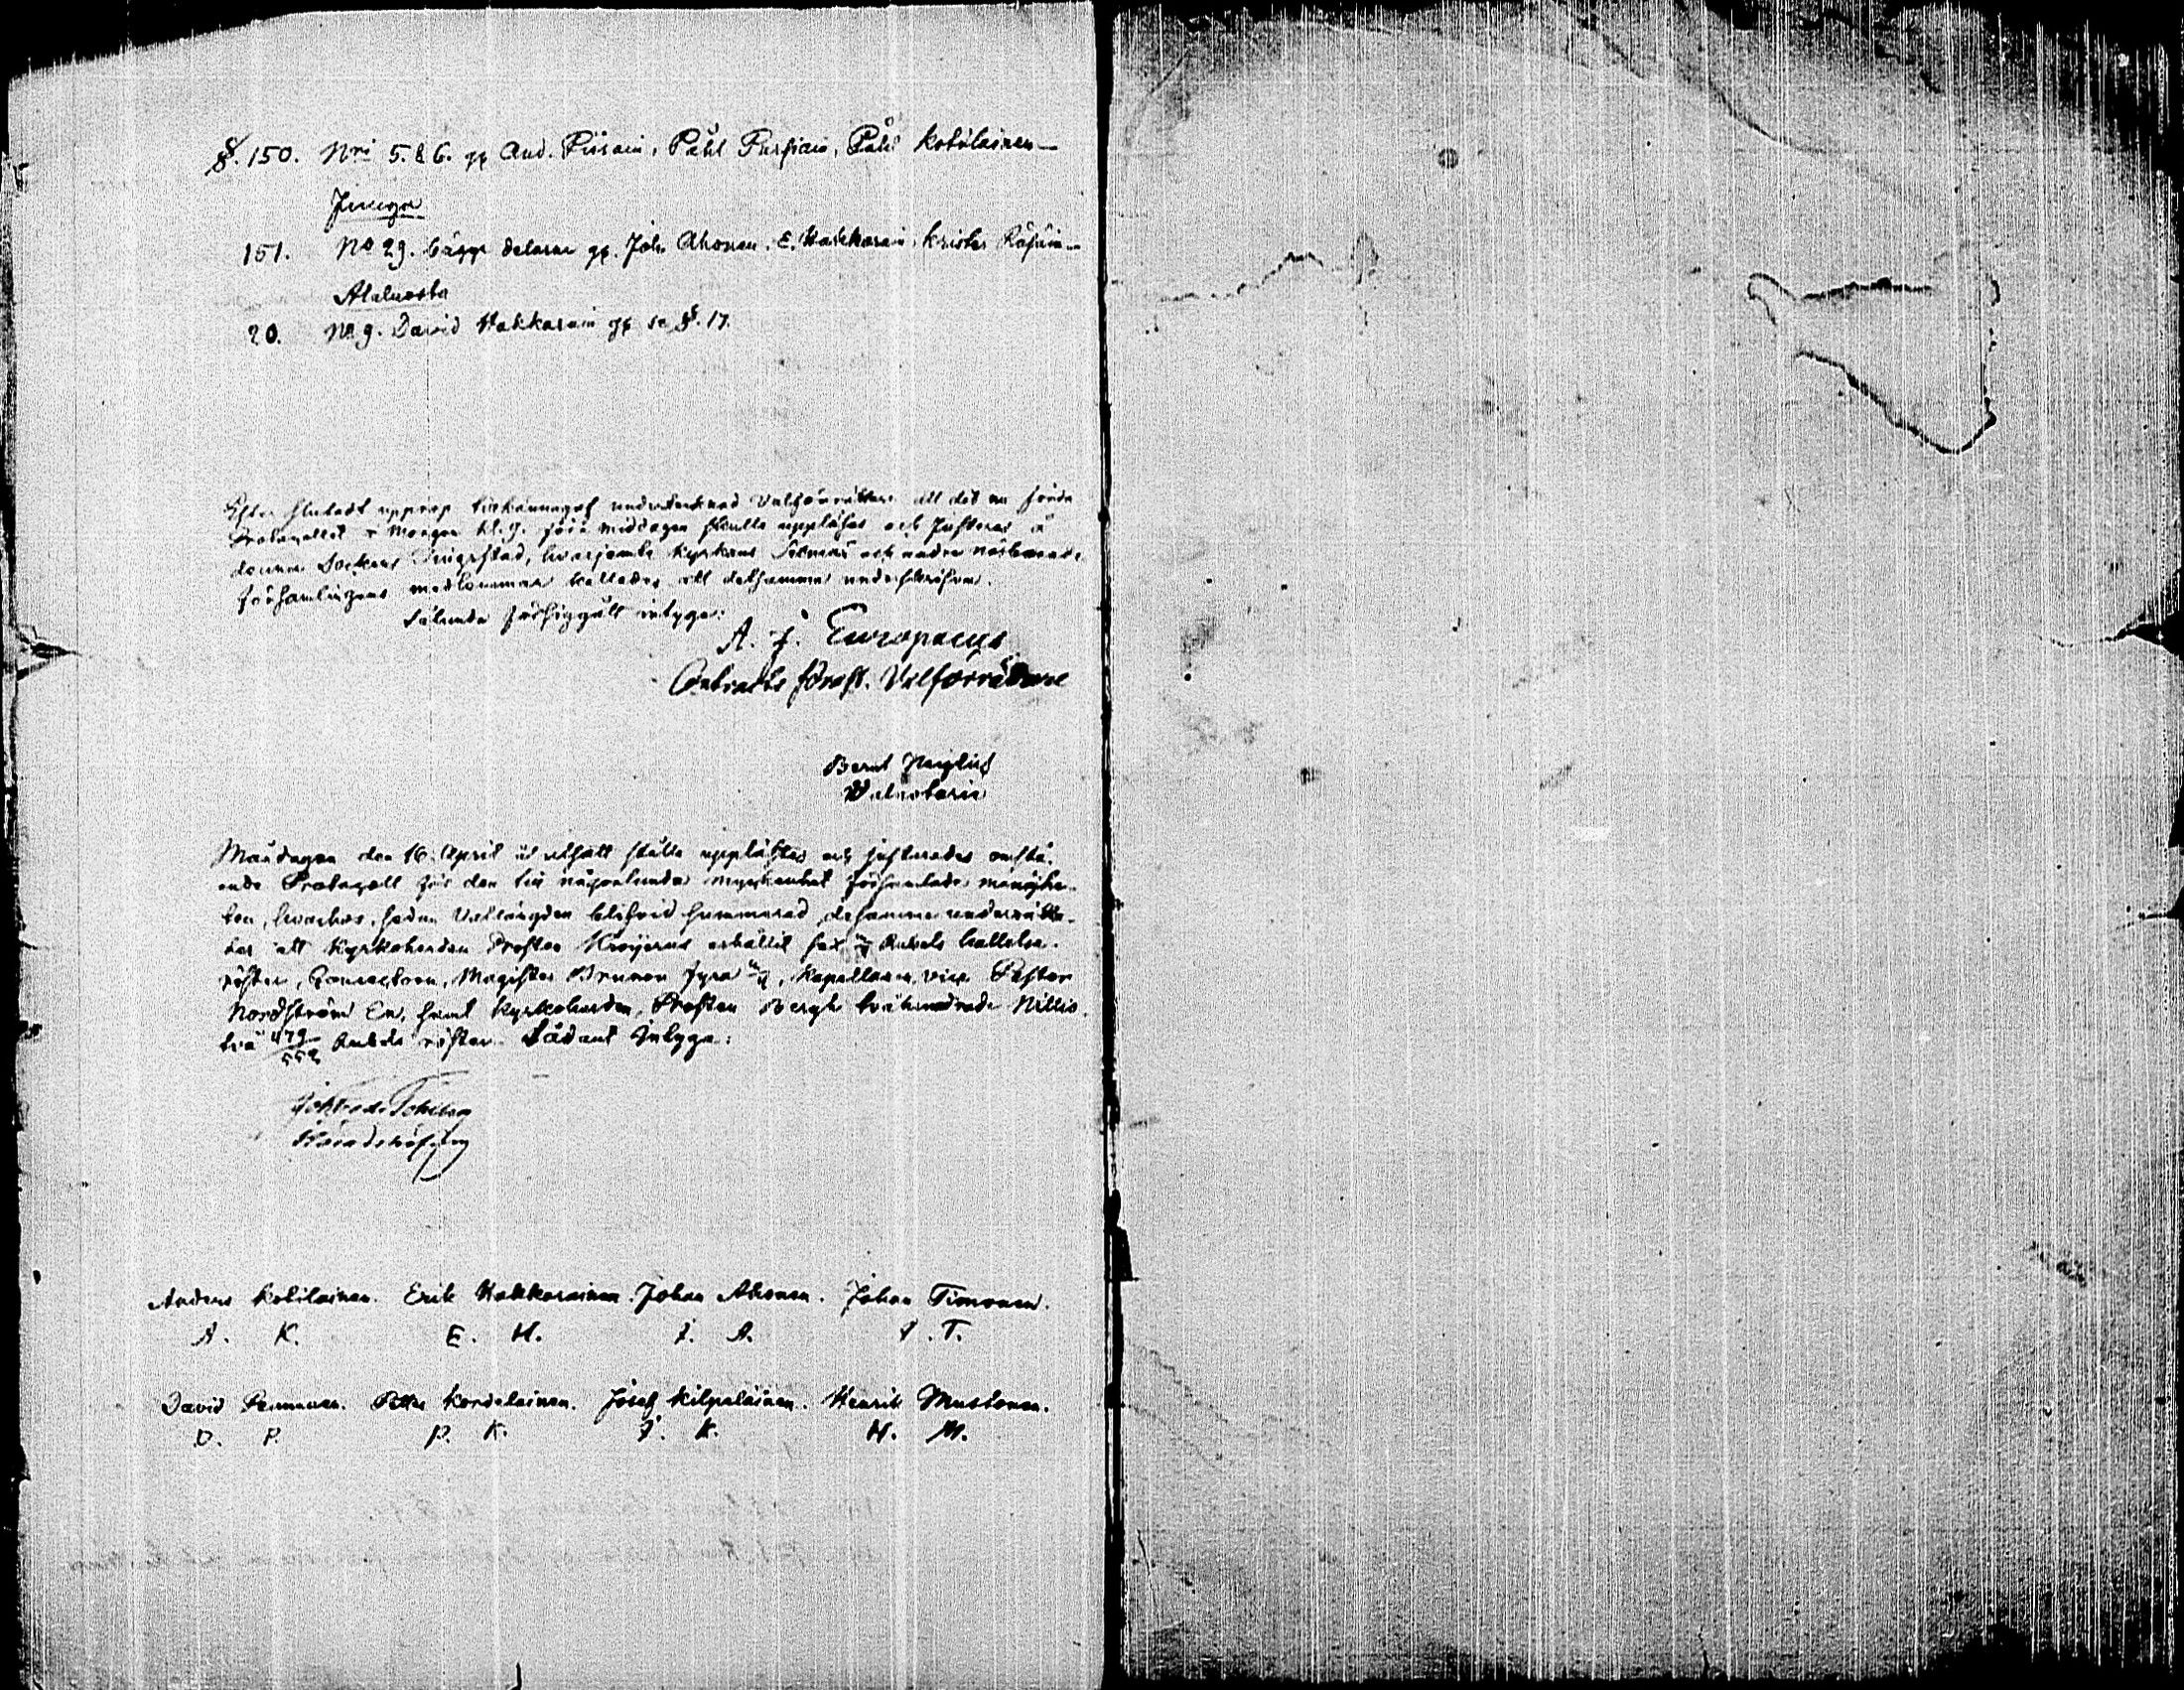 §. 150. Nri 5. & 6. gg And. Piirain, Påhl Pursiain, Påhl Kotilainen
151. No 29. bägge delarne gg. Joh. Ahonen, E. Hakkarain, Krister
Alaluosta
20. No 9. David Hakkarain gg se §. 17.
Efter slutadt upprop tillkännagaf undertecknad Valförrättare att det nu förda
Protocollet i Morgon kl. 9. före middagen skulle uppläsas och justeras å
denna Sockens Tingsstad, hvarjemte kyrkans Sexmän och andre närvarande
församlingens medlemmar kallades att detsamma underskrifva.
Sålunda förhigått intygar:
A. J. Europaeus
Contracts Prost. Valförrättare
Bernt
Valnotarie
Måndagen den 16. April å utsatt ställe upplästes och justerades omstå-
ende Protocoll för den till någorlunda myckenhet församlade menighe-
ten, hvarhos, sedan Vallängden blifvit summerad, desamma underrätta-
des att Kyrkoherden Prosten erhållit sex Rubels kallelse-
röster, Conrectorn, Magister Brunou fyra, Kapellanen, vice Pastor
Nordström En, samt Kyrkoherden, Prosten Bergh tvåhundrade Nittio-
två 479/552 Rubels röster. Sådant Intyga:
Häradshöfding
Anders Kotilainen. Erik Hakkarainen. Johan Ahonen. Johan Timonen.
A. K. E. H. J. A. J. T.
David Pennanen. Petter Kordelainen. Josef Kilpeläinen. Henrik Mustonen.
D. P. P. K. J. K. H. M.